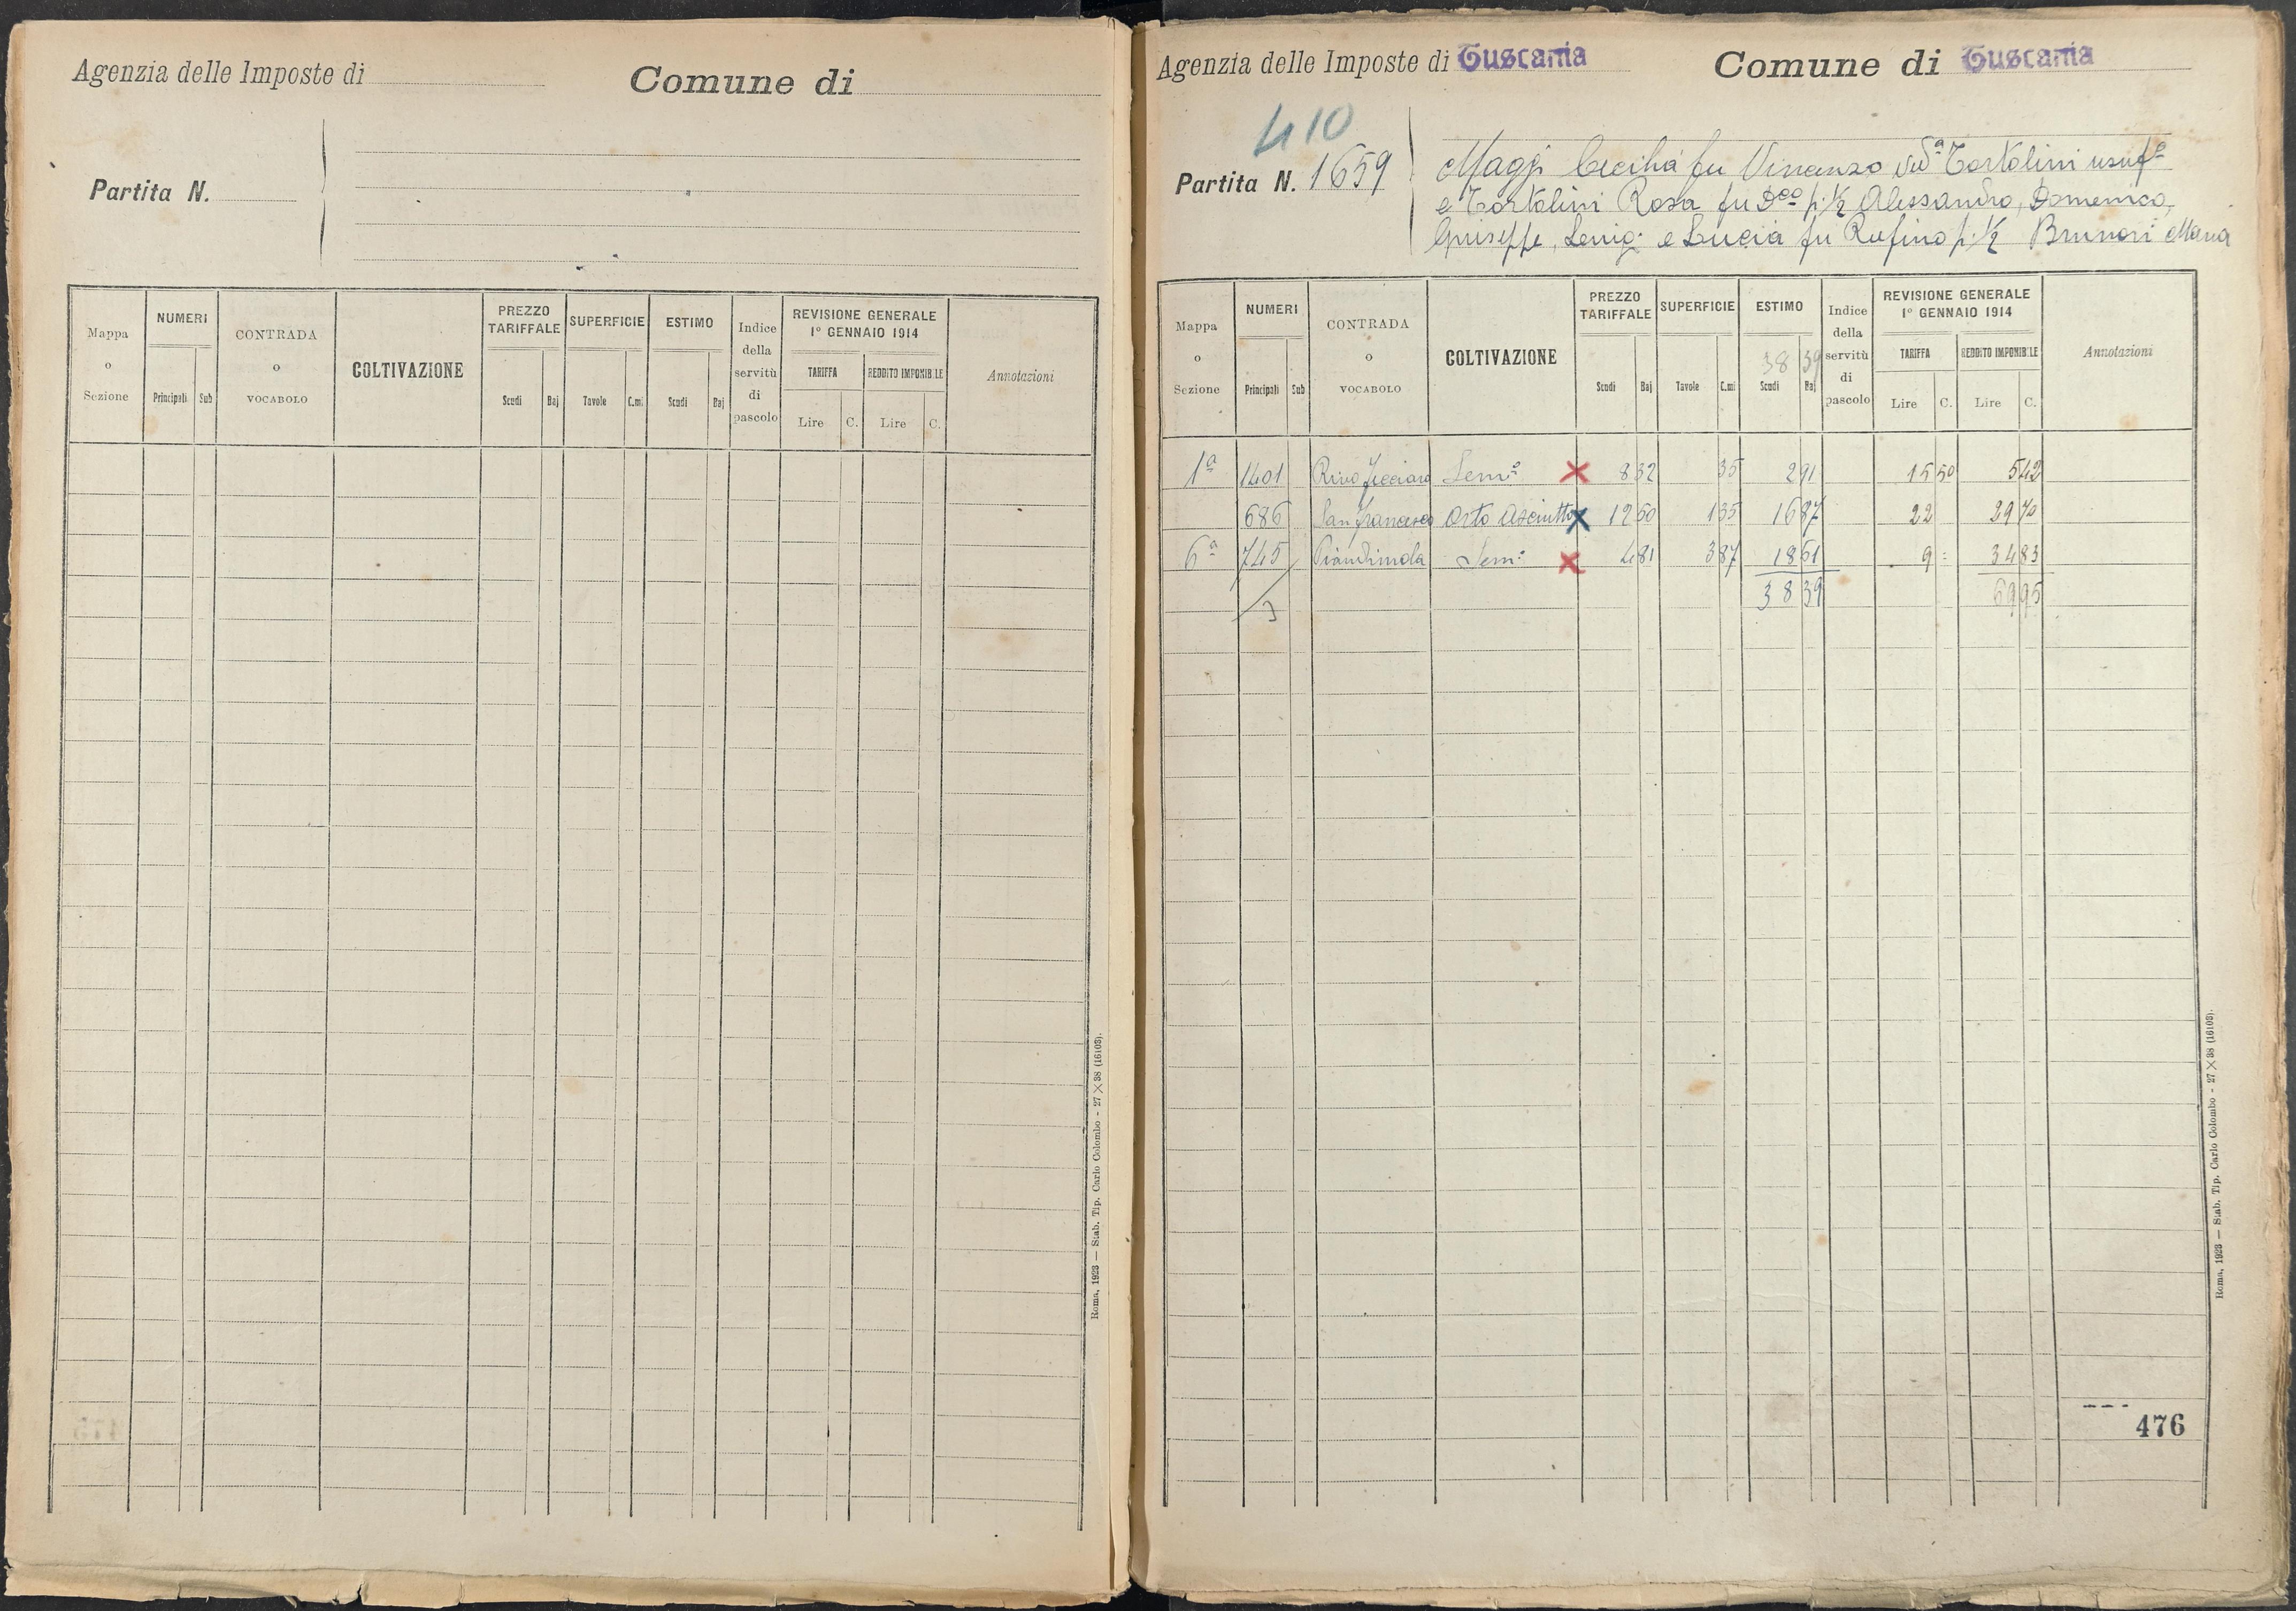 Agenzia delle Imposte di
Comune di
Partita N.
Mappa o Sezione
NUMERI
Principali Sub
CONTRADA o VOCABOLO
COLTIVAZIONE
PREZZO TARIFFALE
Scudi Baj
SUPERFICIE
Tavole C.mi
ESTIMO
Scudi Baj
Indice della servitù di pascolo
REVISIONE GENERALE
1° GENNAIO 1914
TARIFFA
Lire C.
REDDITO IMPONIBILE
Lire C.
Annotazioni
Roma, 1923 — Stab. Tip. Carlo Colombo - 27 × 38 (16103).
Agenzia delle Imposte di Tuscania
Comune di Tuscania
410
Partita N. 1659
Maggi Cecilia fu Vincenzo vedª Tortolini usufª
e Tortolini Rosa fu Dco p. ½ Alessandro, Domenico,
Giuseppe, e Lucia fu Rufino p. ½ Brunori Maria
Mappa o Sezione
NUMERI
Principali Sub
CONTRADA o VOCABOLO
COLTIVAZIONE
PREZZO TARIFFALE
Scudi Baj
SUPERFICIE
Tavole C.mi
ESTIMO
38 39
Scudi Baj
Indice della servitù di pascolo
REVISIONE GENERALE
1° GENNAIO 1914
TARIFFA
Lire C.
REDDITO IMPONIBILE
Lire C.
Annotazioni
1ª 1401 Semº × 8 32 35 2 91 15 50 5 42
686 San Francesco Orto Asciutto × 12 50 1 35 16 87 22 29 70
6ª 745 Semº × 4 81 3 87 18 61 9 = 34 83
3 38 39 69 95
476
Roma, 1923 — Stab. Tip. Carlo Colombo - 27 × 38 (16103).